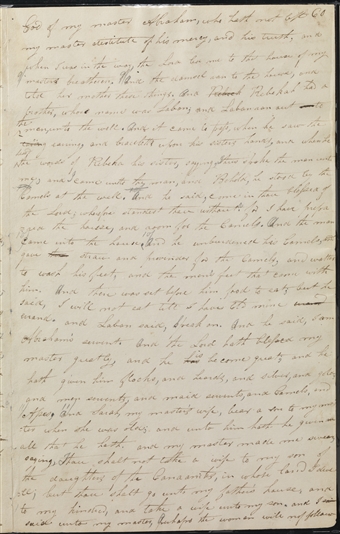 God of my master Abraham, who hath not left 60
my master destitute of his mercy, and his truth, and
when I was in the way, the Lord led me to the house of my
masters breathren. And the damsel ran to the house, and
told his mother these things. And Rebekah had a
brother, whose name was Laban; and Laban ran out
the man, unto the well. And it came to pass, when he saw the
earing, and bracelets upon his sisters hand, and when he
the words of Rebekah his sister, saying, Thus spake the man unto
me; and came unto the man, and Behold, he stood by the
Camels at the well. And he said, come in thou blessed of
the Lord, wherefore standest thou without; for I have prepa
red the house, and room for the Camels. And the man
came into the house. And he unburdened his Camels, and
gave straw and provender for the Camels, and water
to wash his feet, and the mens feet that came with
him. And there was set before him food to eat; but he
said, I will not eat till I have told mine
errand. and Laban said, Speak on. And he said, I am
Abrahams servant. And the Lord hath blessed my
master greatly, and he is become great; and he
hath given him flocks, and herds, and silver, and gold,
and men servents, and maid servents, and Camels, and
Asses. And Sarah my masters wife, bear a son to my mas
ter when she was old; and unto him hath he given
all that he hath. and my master made me swear,
saying, Thou shalt not take a wife to my son of
the daughters of the Canaanites, in whose land I dwe
ll; but thou shalt go unto my fathers house, and
to my kindred, and take a wife unto my son. and I
said unto my master, Perhaps the woman will not follow